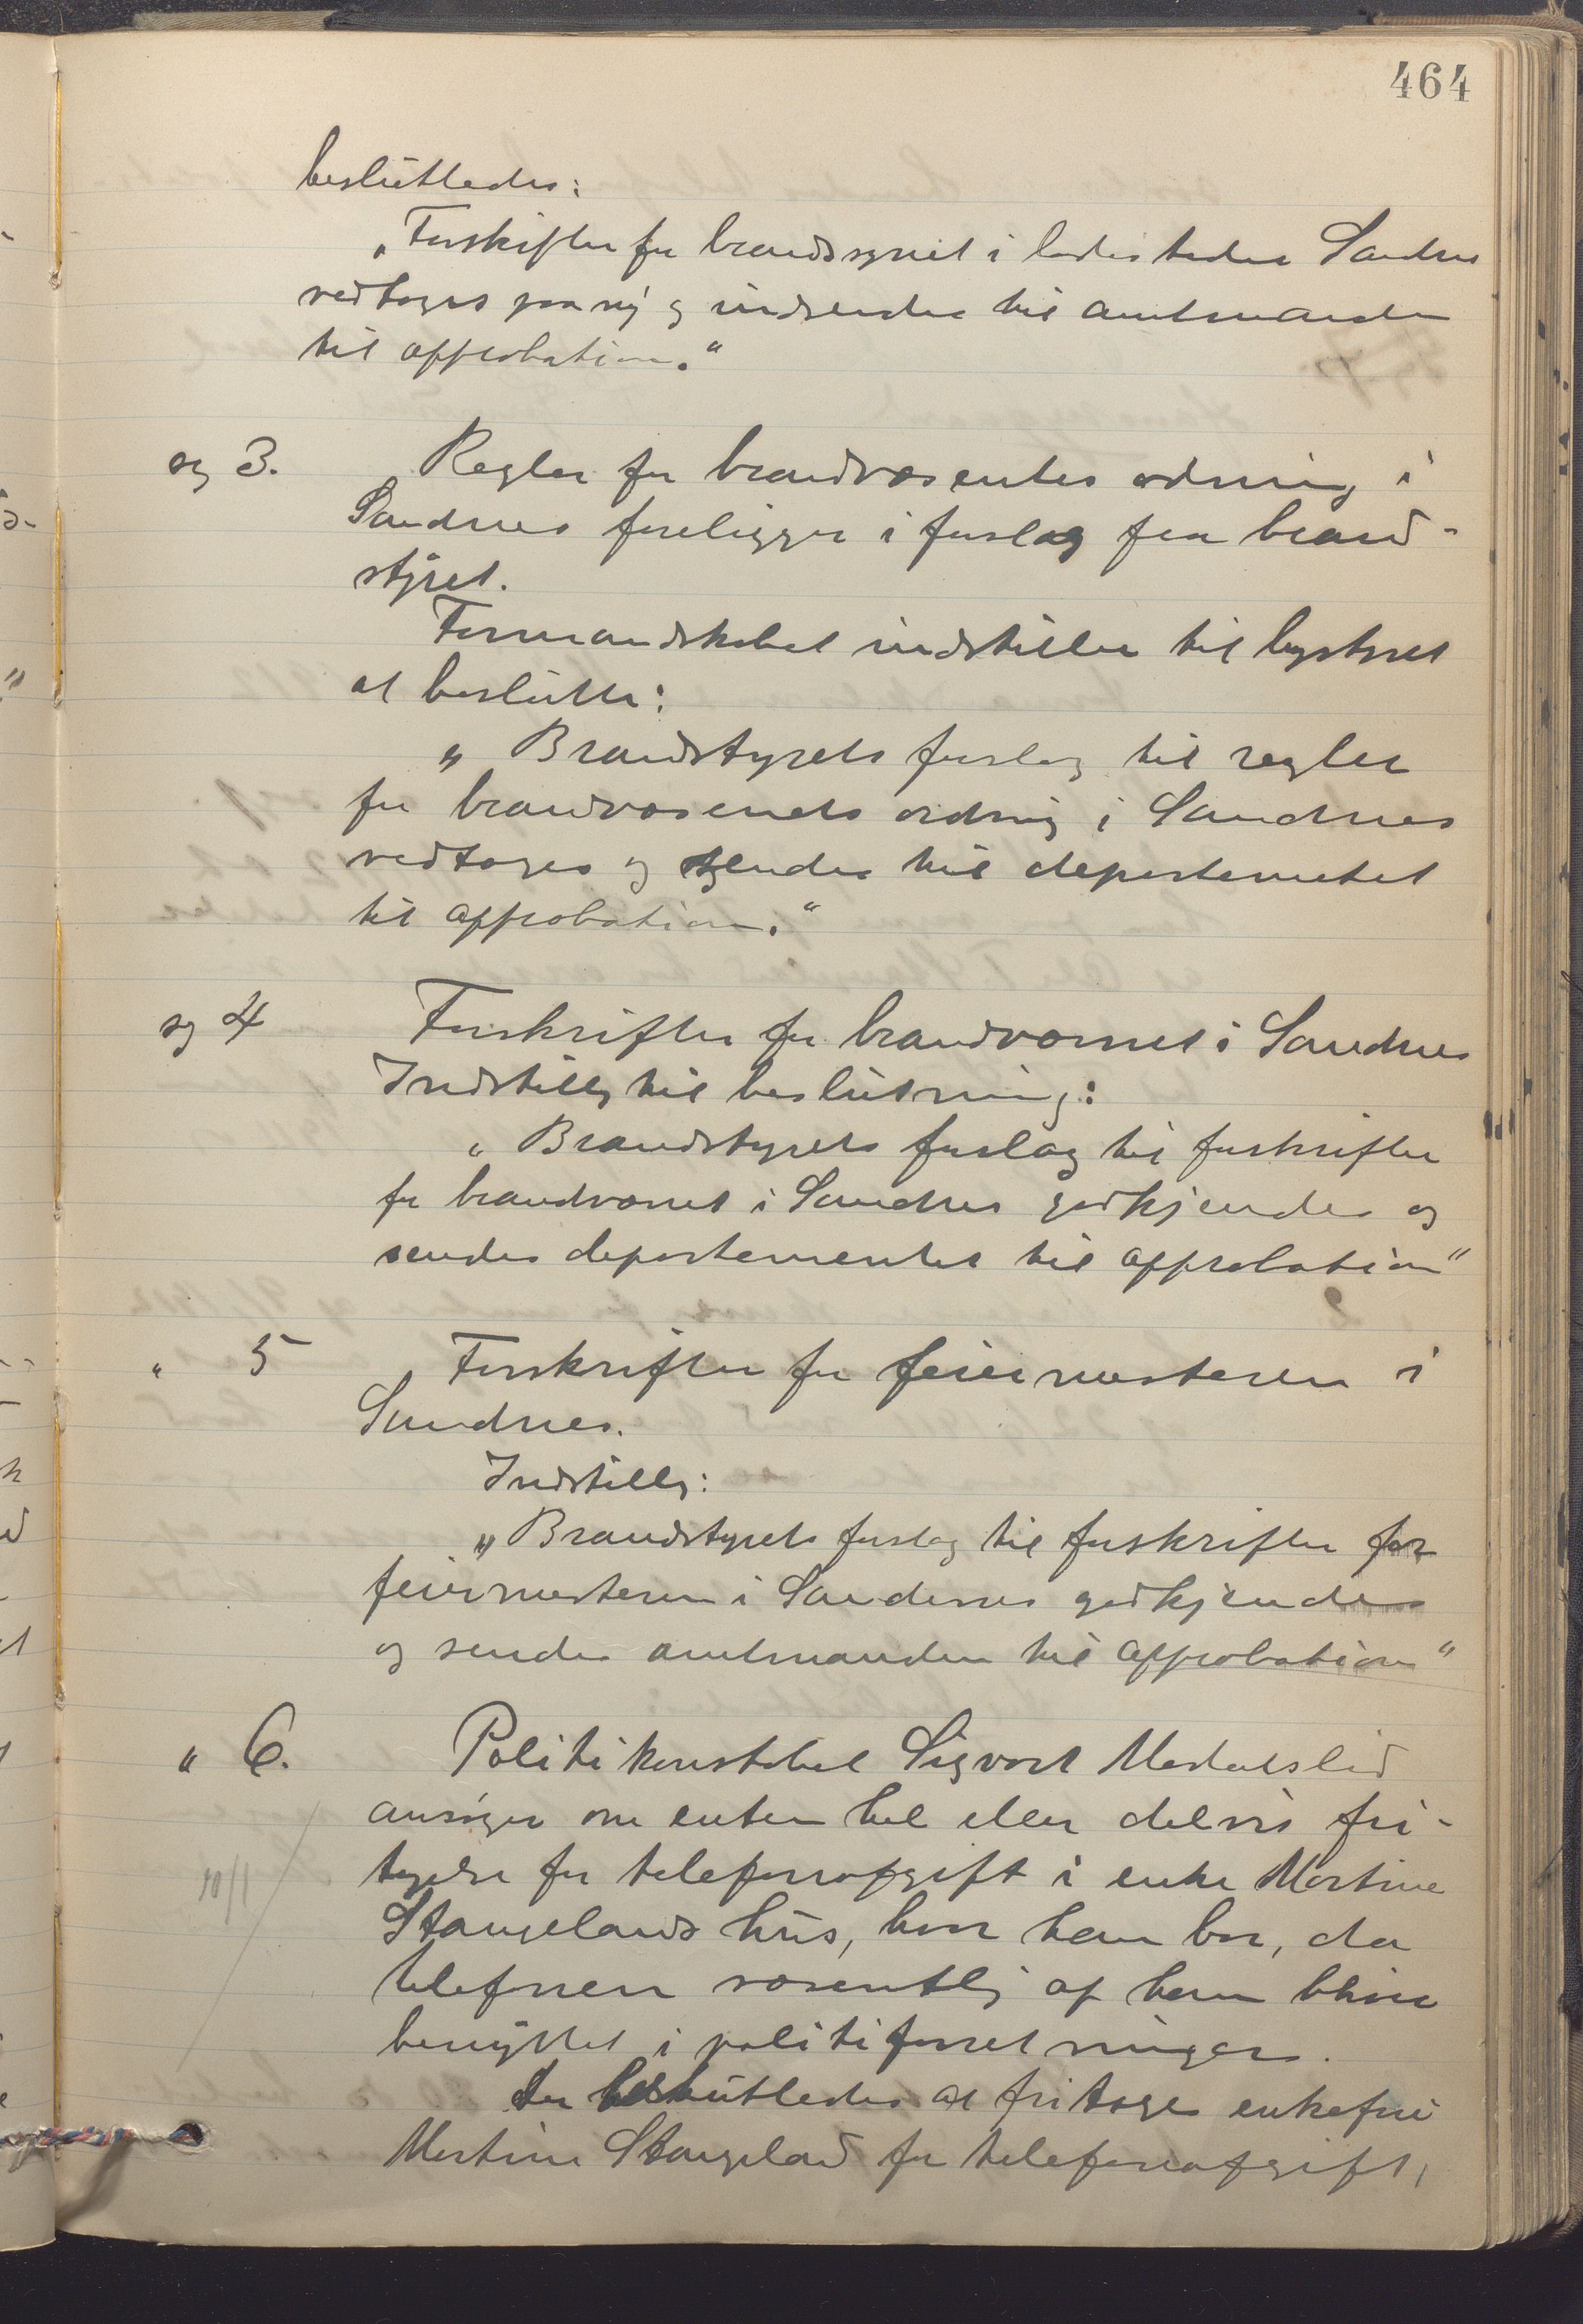 464
besluttedes:
"Forskrifter for brandsynet i ladestedet Sandnes
vedtages paa ny og indsendes til amtmanden
til approbation."
sag 3. Regler for brandvæsentes ordning i
Sandnes foreligger i forslag fra brand-
styret.
Formandskabet indstiller til bystyret
at beslutte:
"Brandstyrets forslag til regler
for brandvæsenets ordning i Sandnes
vedtages og sendes til departementet
til approbation."
sag 4 Forskrifter for brandvernet i Sandnes
Indstillg til beslutning:
"Brandstyrets forslag til forskrifter
for brandvernet i Sandnes godkjendes og
sendes departementet til approbation"
" 5 Forskrifter for feiermesteren i
Sandnes.
Indstillg:
"Brandstyrets forslag til forskrifter for
feiermesteren i Sandnes godkjendes
og sendes amtmanden til approbation"
" 6. Politikonstabel Sigvart
ansøger om enten hel eller delvis fri-
tagelse for telefonafgift i enke Martine
Stangelands hus, hvor han bor, da
telefonen væsentlig af ham blir
benyttet i politiforretninger.
Der besluttedes at fritage enkefru
Martine Stangeland for telefonafgift,